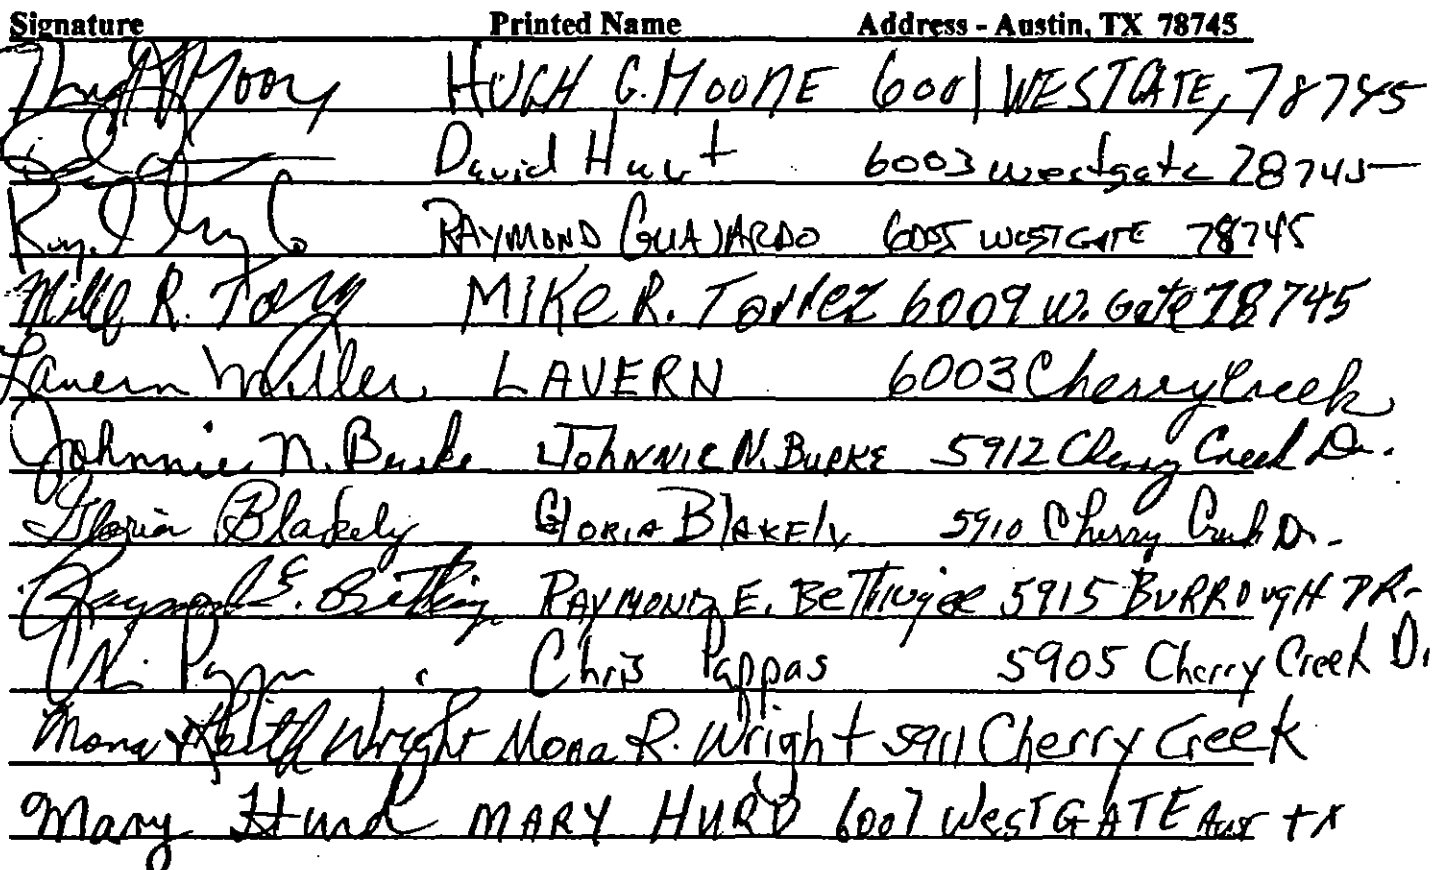 Signature Printed Name Address - Austin, TX 78745
HUGH G. MOORE 6001 WESTGATE, 78745
David Hunt 6003 westgate 78745
RAYMOND GUAJARDO 6005 WESTGATE 78745
Mike R. Torrez MIKE R. Torrez 6009 W. Gate 78745
Lavern Miller LAVERN 6003 Cherry Creek
Johnnie N. Burke JOHNNIE N. BURKE 5912 Cherry Creek Dr.
Gloria Blakely GLORIA BLAKELY 5910 Cherry Creek Dr.
Raymond E. RAYMOND E. 5915 BURROUGH DR.
Chris Pappas 5905 Cherry Creek D.
Mona & Keith Wright Mona R. Wright 5911 Cherry Creek
Mary Hurd MARY HURD 6007 WESTGATE Aust TX